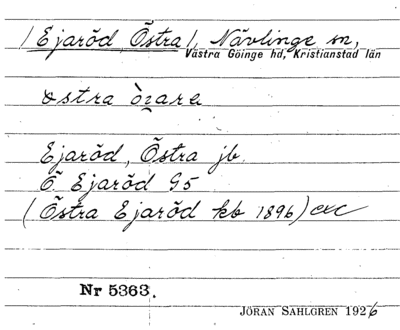 / Ejaröd, Östra /, Nävlinge sn,
Västra Göinge hd, Kristianstad län
Ejaröd, Östra jb.
Ö Ejaröd G5
(Östra Ejaröd kb 1896) exc
Nr 5363.
JÖRAN SAHLGREN 1926